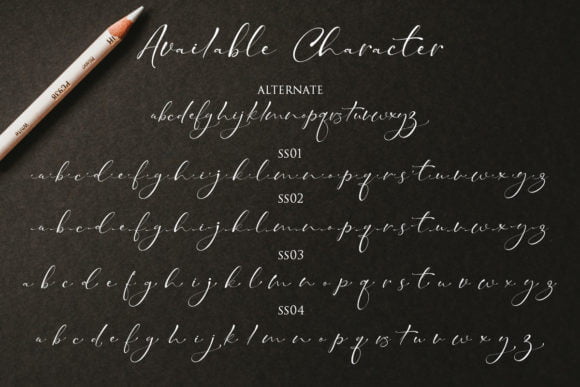 Available Character
ALTERNATE
abcdefghijklmnopqrstuvwxyz
SS01
a.b.c.d.e.f.g.h.i.j.k.l.m.n.o.p.q.r.s.t.u.v.w.x.y.z
SS02
a.b.c.d.e.f.g.h.i.j.k.l.m.n.o.p.q.r.s.t.u.v.w.x.y.z
SS03
a b c d e f g h i j k l m n o p q r s t u v w x y z
SS04
a b c d e f g h i j k l m n o p q r s t u v w x y z
PC938
White